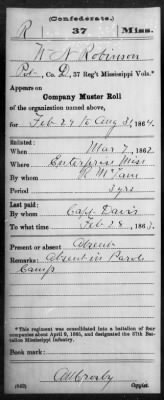 (Confederate.)
R 37 Miss.
W N Robinson
Pvt, Co. D, 37 Reg't Mississippi Vols.*
Appears on
Company Muster Roll
of the organization named above,
for Feb 29 to Aug 31, 1864.
Enlisted:
When Mar 7, 1862.
Where Enterprise Miss
By whom
Period 3 yrs
Last paid:
By whom Capt. Davis
To what time Feb 28, 1863.
Present or absent Absent
Remarks: Absent in Parole
Camp
*This regiment was consolidated into a battalion of four companies about April 9, 1865, and designated the 37th Battalion Mississippi Infantry.
Book mark:
Copyist.